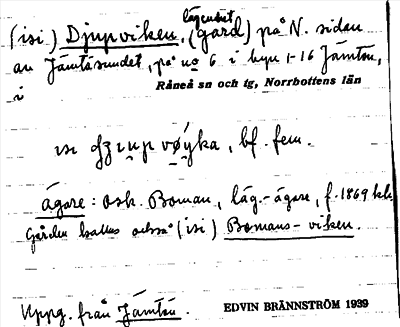 lägenhet
(isi) Djupviken, (gård) på N. sidan
av Jämtösundet, på no 6 i byn 1-16 Jämtön,
i
Råneå sn och tg, Norrbottens län
bf. fem.
ägare: Osk. Boman, läg.-ägare, f. 1869 kk
Gården kallas också (isi) Bomans-viken.
Uppg. från Jämtön.
EDVIN BRÄNNSTRÖM 1939